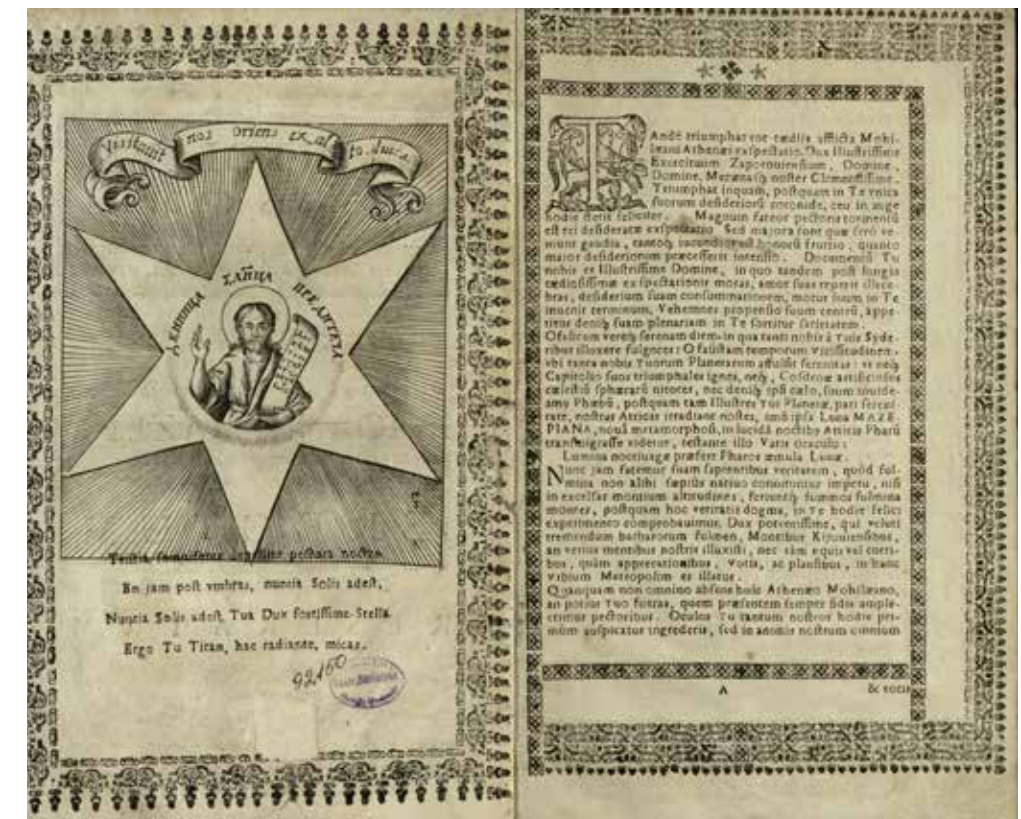 Visitauit nos Oriens ex alto
ДЕННИЦА
СЛНЦА
ПРЕДИТЕЧА
pectora nostra
En jam post vmbras, nuncia Solis adest,
Nuncia Solis adest, Tua Dux fortissime Stella.
Ergo Tu Titan, hac radiante, micas.
92150
TAndē triumphat tot tædijs afflicta Mohi-
leani Athenæi exspectatio. Dux Illustrissime
Exercituum Zaporouiensium, Domine,
Domine, Mecænasq; noster Clementissime.
Triumphat inquam, postquam in Te vnica
suorum desideriorū coronide, ceu in auge
hodie stetit feliciter. Magnum fateor pectoris tormentū
est rei desideratæ exspectatio. Sed majora sunt quæ serò ve-
niunt gaudia, tantoq; iucundior est honesti fruitio, quanto
maior desideriorum præcesserit intensio. Documentū Tu
nobis es Illustrissime Domine, in quo tandem post longas
tædiosissimæ exspectationis moras, amor suas reperit illece-
bras, desiderium suam consummationem, motus suum in Te
inuenit terminum, Vehemens propensio suum centrū, appe-
titus deniq; suam plenariam in Te sortitur satietatem.
O faustam verè & serenam diem in qua tanti nobis à Tuis Syde-
ribus illuxere fulgores: O faustam temporum vicissitudinem,
vbi tanta nobis Tuorum Planetarum affulsit serenitas: vt neq;
Capitolio suos triumphales ignes, neq; Cosdroæ artificiosos
cælestiū sphærarū nitores, nec deniq; ipsi cælo, suum inuide-
amus Phæbū, postquam tam Illustres Tui Planetæ, pari sereni-
tate, nostras Atticas irradiant noctes, imò ipsa Luna MAZE-
PIANA, nouâ metamorphosi, in lucidā noctibus Atticis Pharū
transmigrasse videtur, testante illo Vatis oraculo:
Lumina noctiuagæ præfert Pharos æmula Lunæ.
Nunc jam fatemur suam sapientibus veritatem, quòd ful-
mina non alibi sæpius natiuo conuertuntur impetu, nisi
in excelsas montium altitudines, feriuntq; summos fulmina
montes, postquam hoc veritatis dogma, in Te hodie felici
experimento comprobauimus. Dux potentissime, qui veluti
tremendum barbarorum fulmen, Montibus Kijouiensibus,
an verius mentibus nostris illuxisti, nec tàm equis vel curri-
bus, quàm apprecationibus, votis, ac plausibus, in hanc
vrbium Metropolim es illatus.
Quanquam non omnino absens huic Athenæo Mohilæano,
an potius Tuo fueras, quem præsentem semper fidis ample-
ctimur pectoribus. Oculos Tu tantum nostros hodie pri-
mùm auspicatus ingrederis, sed in animis nostrum omnium
A
& votis